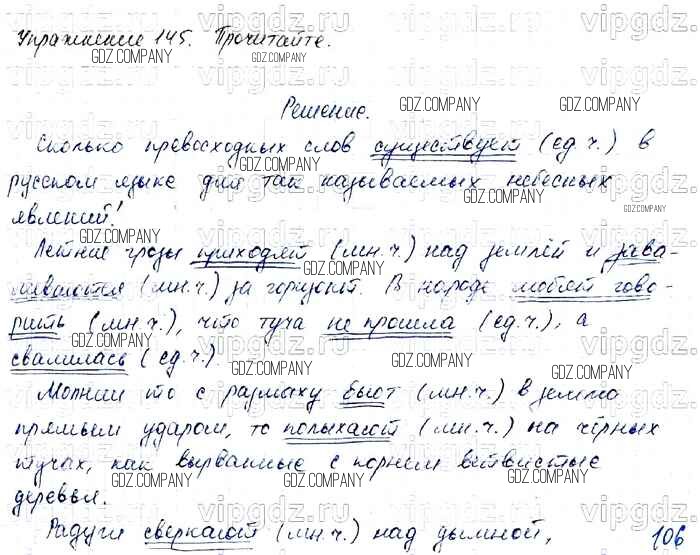 Упражнение 145. Прочитайте.
Решение.
Сколько превосходных слов существует (ед.ч.) в
русском языке для так называемых небесных
явлений!
Летние грозы приходят (мн.ч.) над землёй и зава-
ливаются (мн.ч.) за горизонт. В народе любят гово-
рить (мн.ч.), что туча не прошла (ед.ч.), а
свалилась (ед.ч.).
Молнии то с размаху бьют (мн.ч.) в землю
прямым ударом, то полыхают (мн.ч.) на чёрных
тучах, как вырванные с корнем ветвистые
деревья.
Радуги сверкают (мн.ч.) над дымной,
106
vipgdz.ru
GDZ.COMPANY